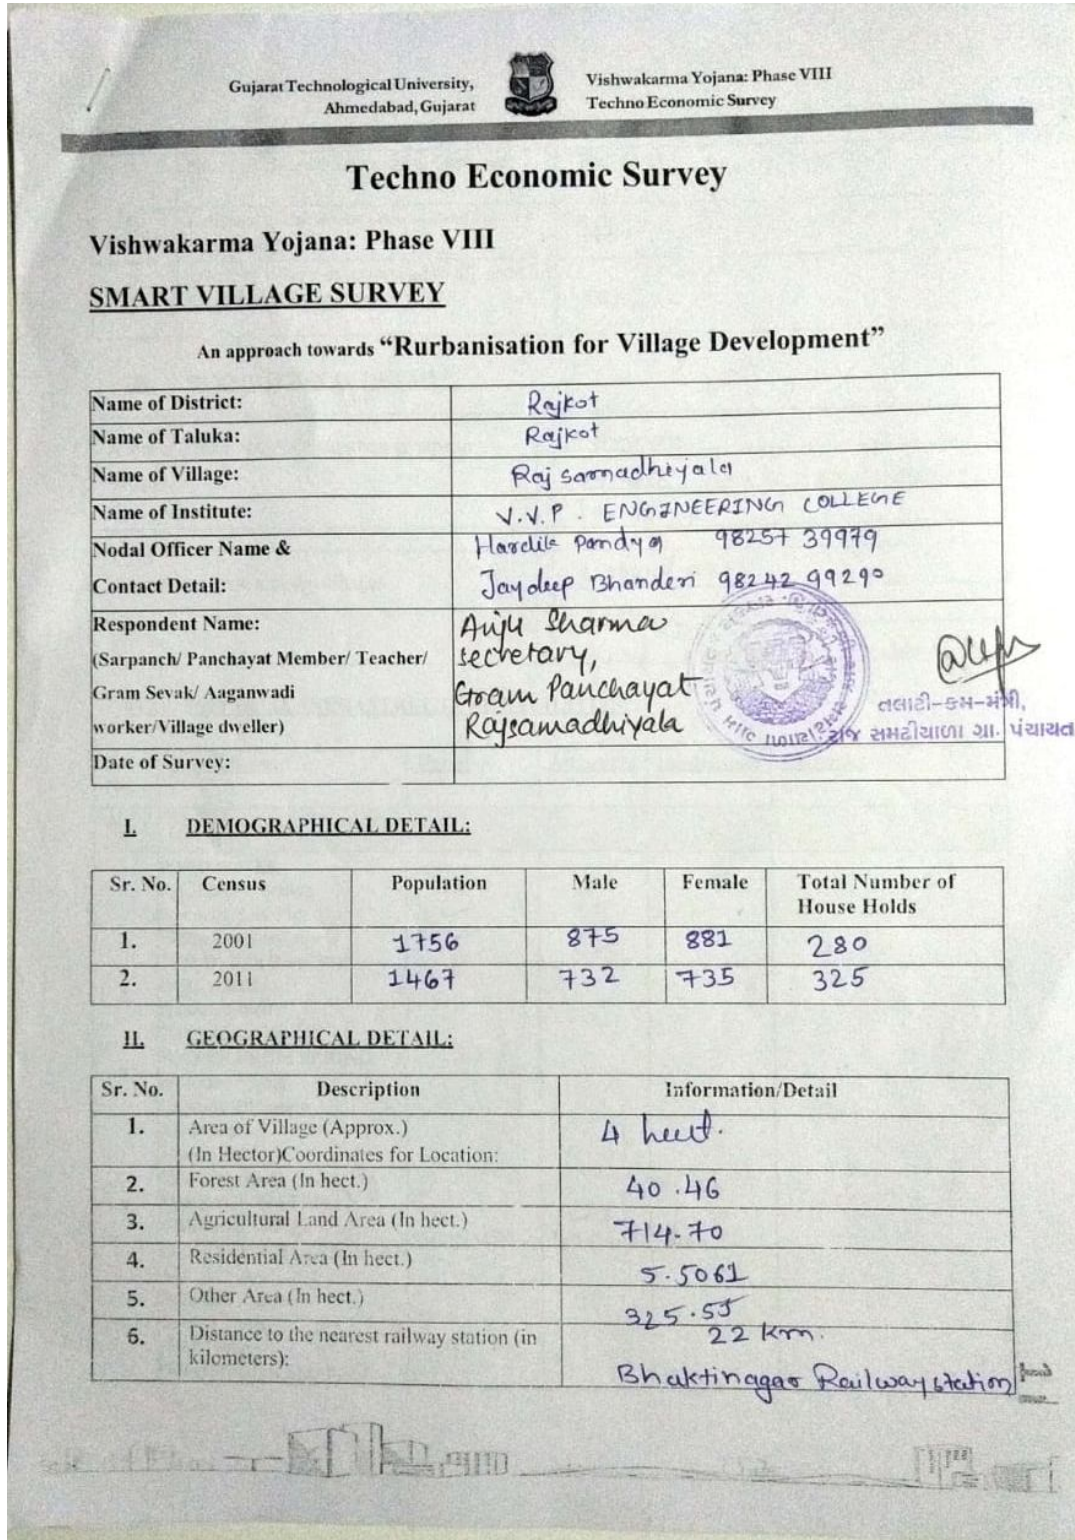 Gujarat Technological University,
Ahmedabad, Gujarat
Vishwakarma Yojana: Phase VIII
Techno Economic Survey
Techno Economic Survey
Vishwakarma Yojana: Phase VIII
SMART VILLAGE SURVEY
An approach towards “Rurbanisation for Village Development”
Name of District: Rajkot
Name of Taluka: Rajkot
Name of Village: Raj samadhiyala
Name of Institute: V.V.P. ENGINEERING COLLEGE
Nodal Officer Name & Hardik Pandya 98257 39979
Contact Detail: Jaydeep Bhanderi 98242 99290
Respondent Name: Anju Sharma
(Sarpanch/ Panchayat Member/ Teacher/ secretary,
Gram Sevak/ Aaganwadi Gram Panchayat
worker/Village dweller) Rajsamadhiyala
તલાટી-કમ-મંત્રી,
રાજ સમઢીયાળા ગ્રા. પંચાયત
Date of Survey:
I. DEMOGRAPHICAL DETAIL:
Sr. No. Census Population Male Female Total Number of
House Holds
1. 2001 1756 875 881 280
2. 2011 1467 732 735 325
II. GEOGRAPHICAL DETAIL:
Sr. No. Description Information/Detail
1. Area of Village (Approx.) 4 hect.
(In Hector)Coordinates for Location:
2. Forest Area (In hect.) 40.46
3. Agricultural Land Area (In hect.) 714.70
4. Residential Area (In hect.) 5.5061
5. Other Area (In hect.) 325.55
6. Distance to the nearest railway station (in 22 km.
kilometers): Bhaktinagar Railway station